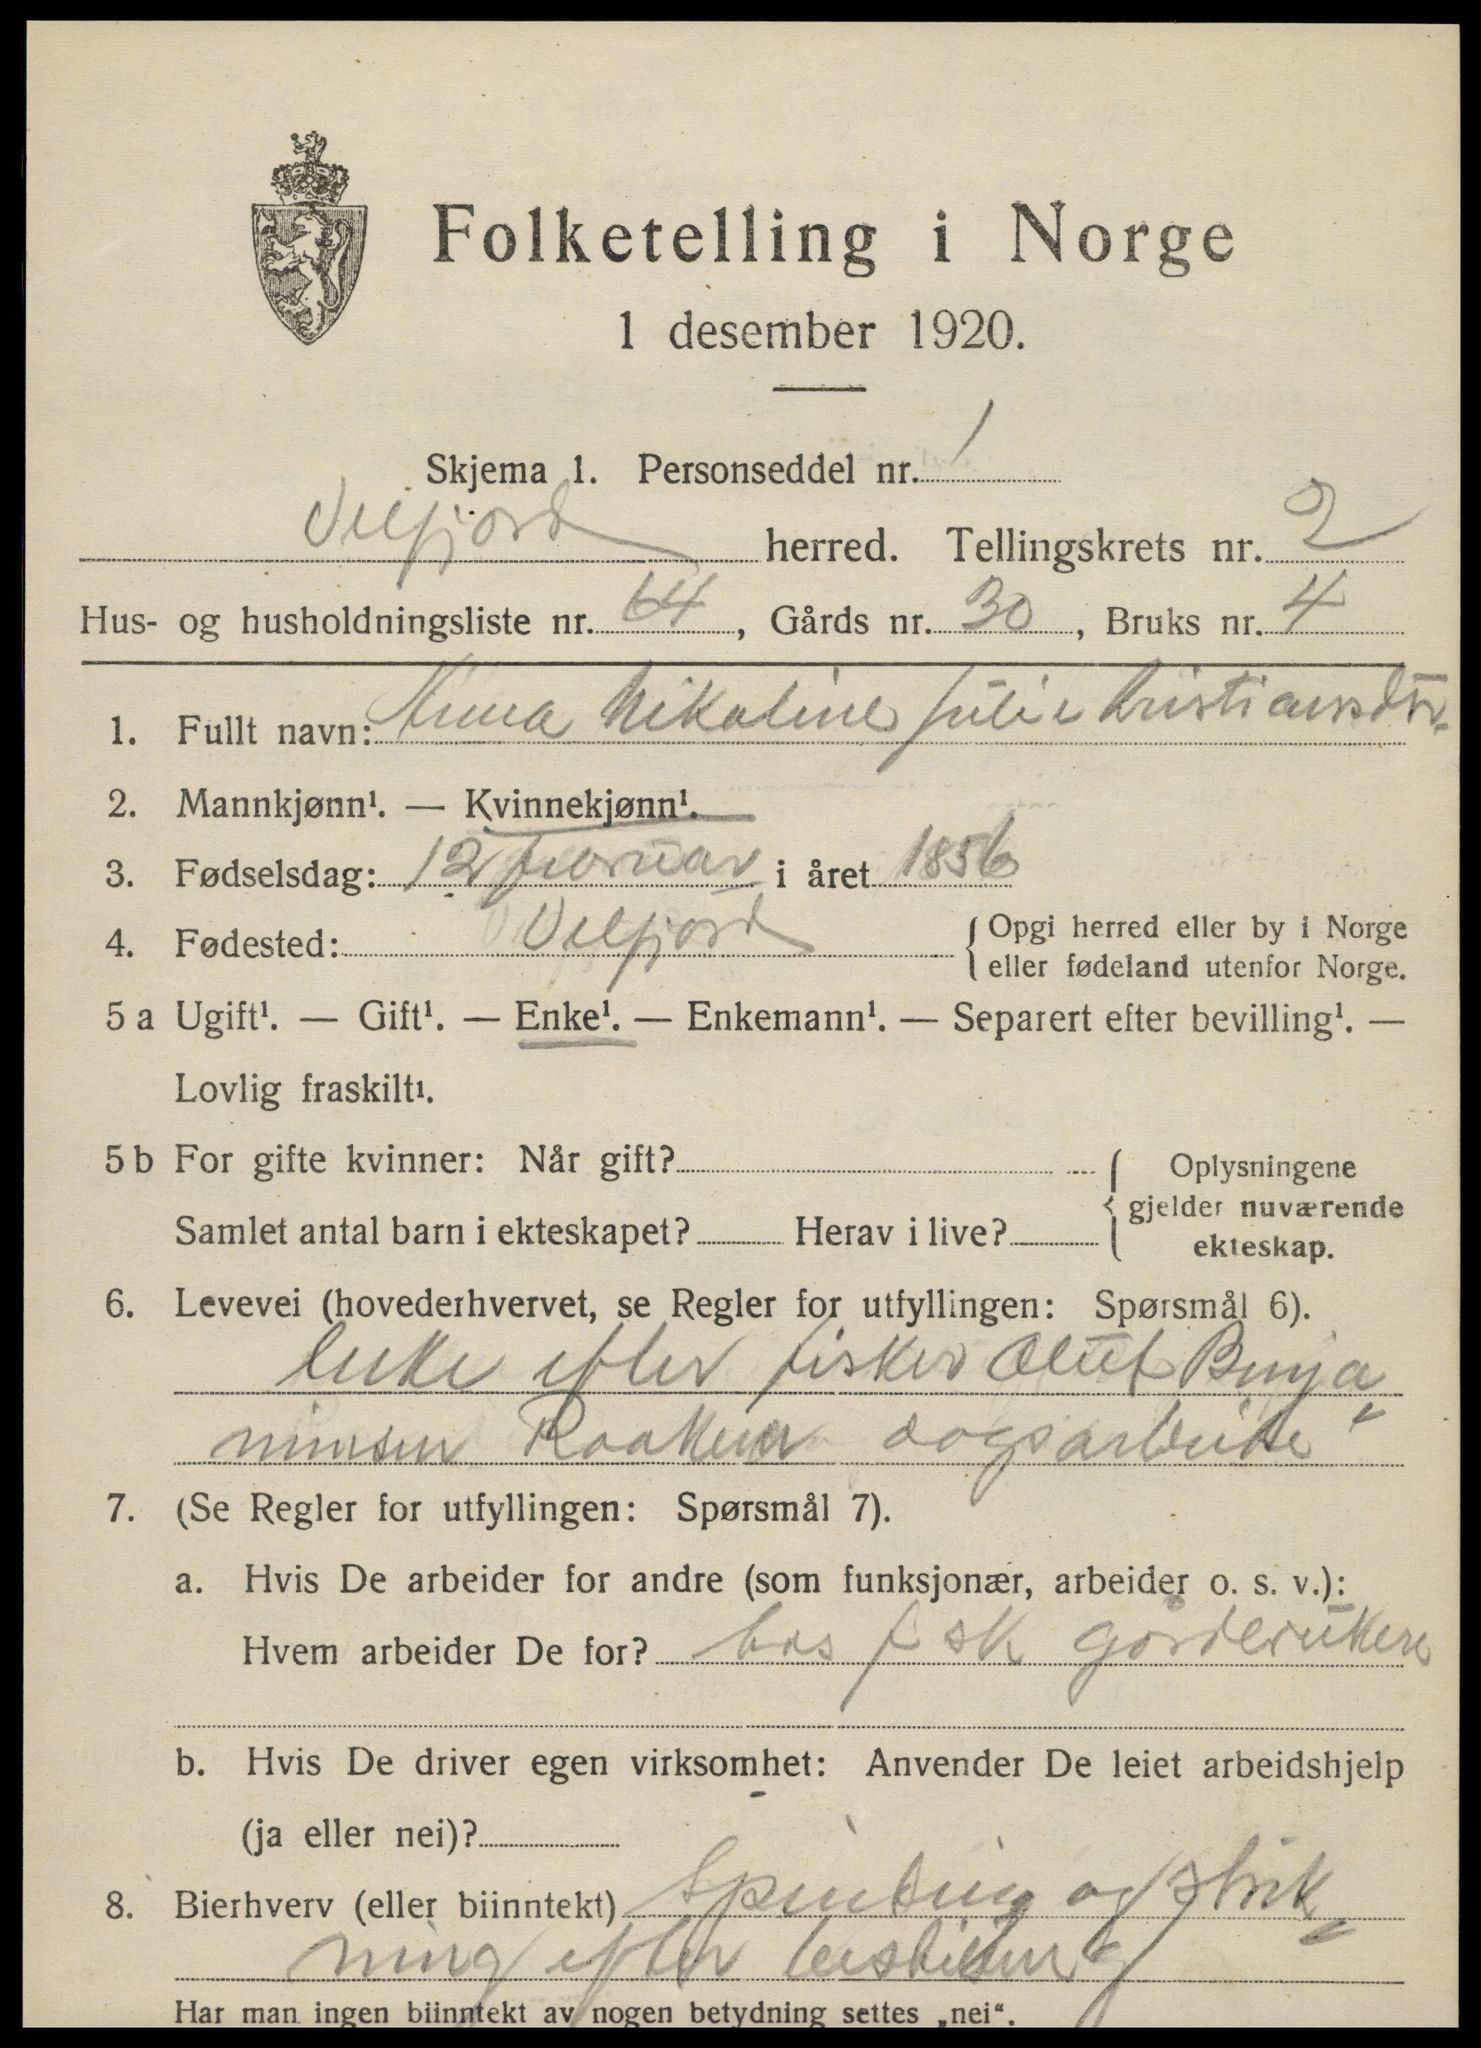 Folketelling i Norge
1 desember 1920.
Skjema 1. Personseddel nr. 1
Velfjord herred. Tellingskrets nr. 2
Hus- og husholdningsliste nr. 64, Gårds nr. 30, Bruks nr. 4
1. Fullt navn: Anna Nikoline Julie Kristiansdtr.
2. Mannkjønn¹. — Kvinnekjønn¹.
3. Fødselsdag: 12 februar i året 1856
4. Fødested: Velfjord { Opgi herred eller by i Norge
eller fødeland utenfor Norge.
5 a Ugift¹. — Gift¹. — Enke¹. — Enkemann¹. — Separert efter bevilling¹. —
Lovlig fraskilt¹.
5 b For gifte kvinner: Når gift? { Oplysningene
gjelder nuværende
ekteskap.
Samlet antal barn i ekteskapet? Herav i live?
6. Levevei (hovederhvervet, se Regler for utfyllingen: Spørsmål 6).
Enke efter fisker Oluf Benja
minsen dagsarbeide
7. (Se Regler for utfyllingen: Spørsmål 7).
a. Hvis De arbeider for andre (som funksjonær, arbeider o. s. v.):
Hvem arbeider De for? hos f sk gårdbrukere
b. Hvis De driver egen virksomhet: Anvender De leiet arbeidshjelp
(ja eller nei)?
8. Bierhverv (eller biinntekt) Spinding og strik
ning efter bestilling
Har man ingen biinntekt av nogen betydning settes „nei".